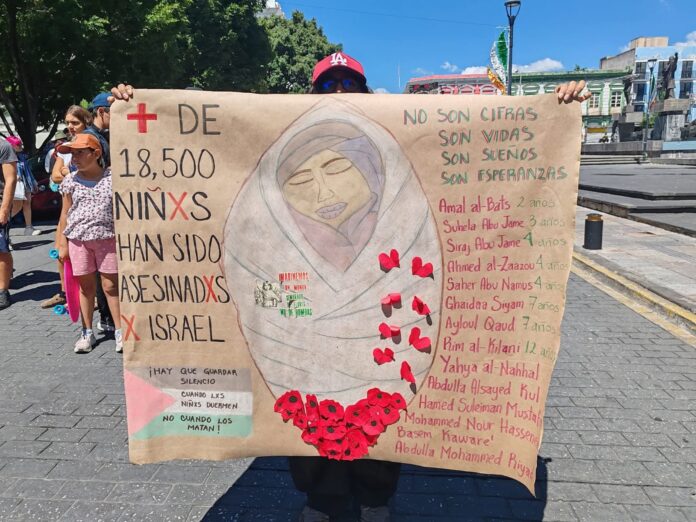 LA
+ DE
18,500
NIÑXS
HAN SIDO
ASESINADXS
X ISRAEL
¡HAY QUE GUARDAR
SILENCIO
CUANDO LXS
NIÑXS DUERMEN
NO CUANDO LOS
MATAN!
NO SON CIFRAS
SON VIDAS
SON SUEÑOS
SON ESPERANZAS
Amal al-Bats 2 años
Suhela Abu Jame 3 años
Siraj Abu Jame 4 años
Ahmed al-Zaazou 4 años
Saher Abu Namus 4 años
Ghaidaa Siyam 7 años
Ayloul Qaud 7 años
Rim al-Kilani 12 años
Yahya al-Nahhal
Abdulla Alsayed Kul
Hamed Suleiman Mustafa
Mohammed Nour Hassene
Basem Kaware'
Abdulla Mohammed Riyal